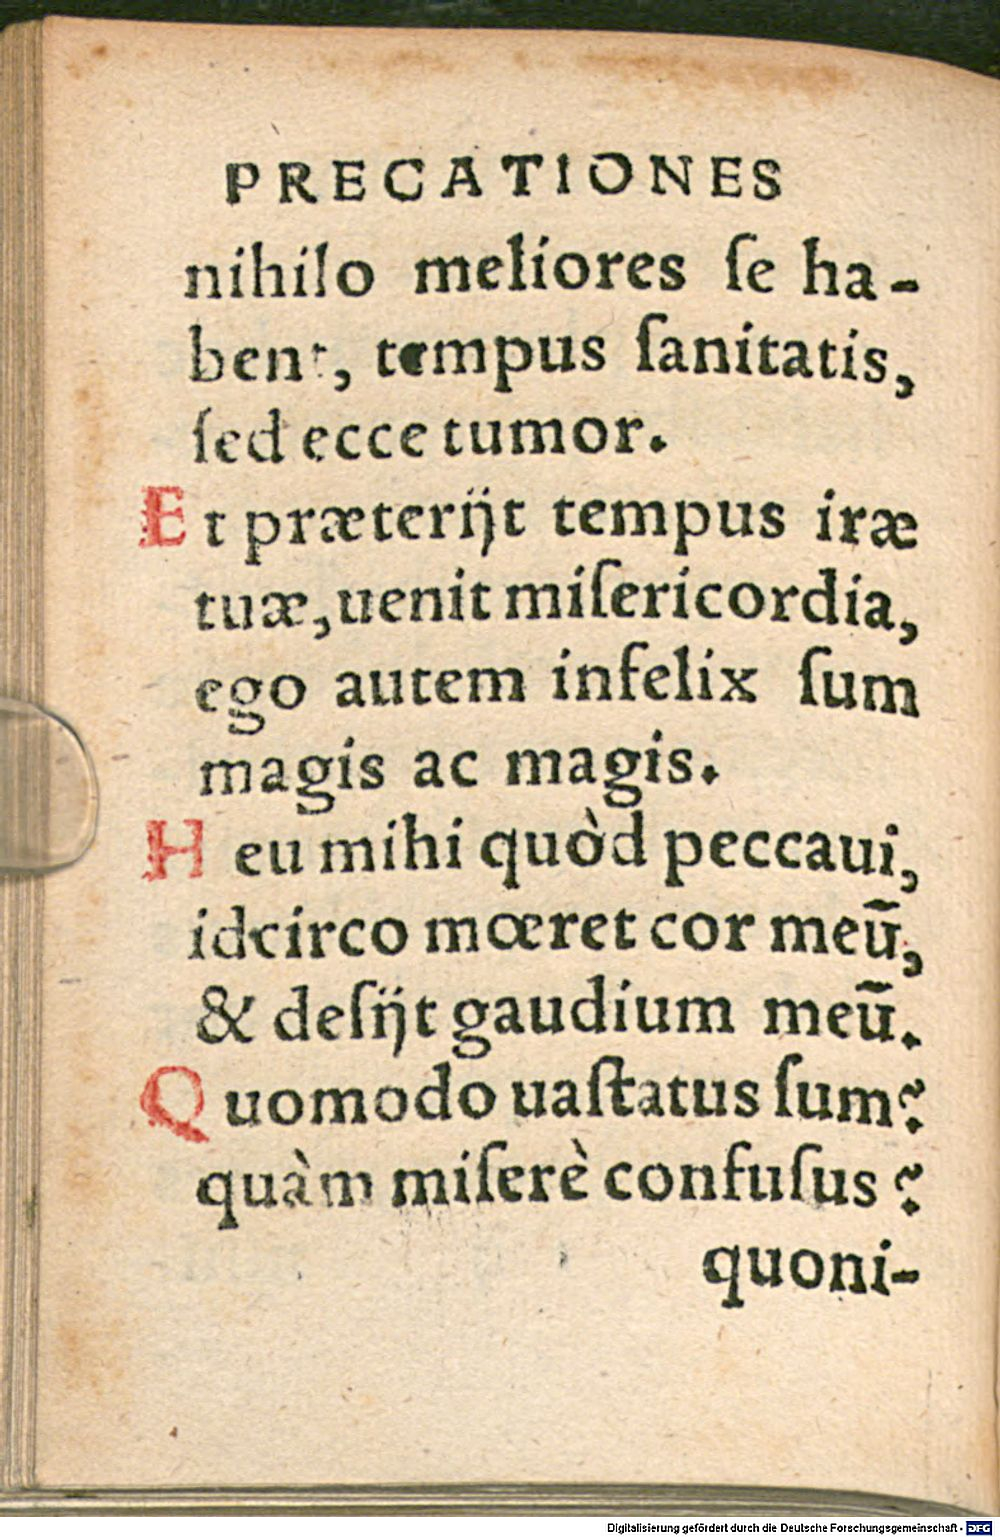 PRECATIONES
nihilo meliores ſe ha-
bent, tempus ſanitatis,
ſed ecce tumor.
Et præterijt tempus iræ
tuæ, uenit miſericordia,
ego autem infelix ſum
magis ac magis.
Heu mihi quòd peccaui,
idcirco mœret cor meū,
& deſijt gaudium meū.
Quomodo uaſtatus ſum?
quàm miſerè confuſus?
quoni-
Digitalisierung gefördert durch die Deutsche Forschungsgemeinschaft - DFG